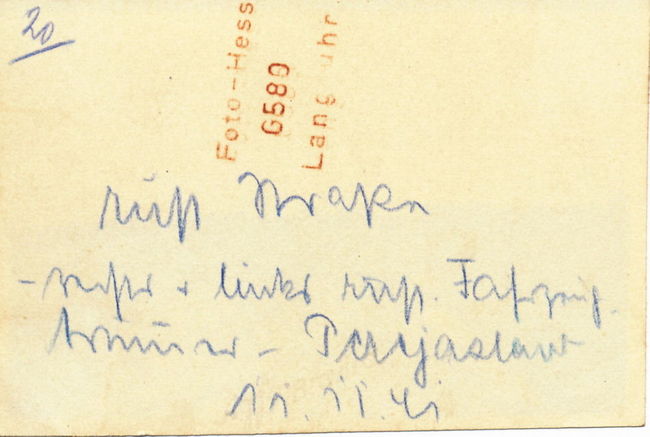 20
Foto-Hess
G580
Langfuhr
russ Straße
- rechts + links russ. Fahrzeug-
trümmer - Perejaslaw
11.11.41